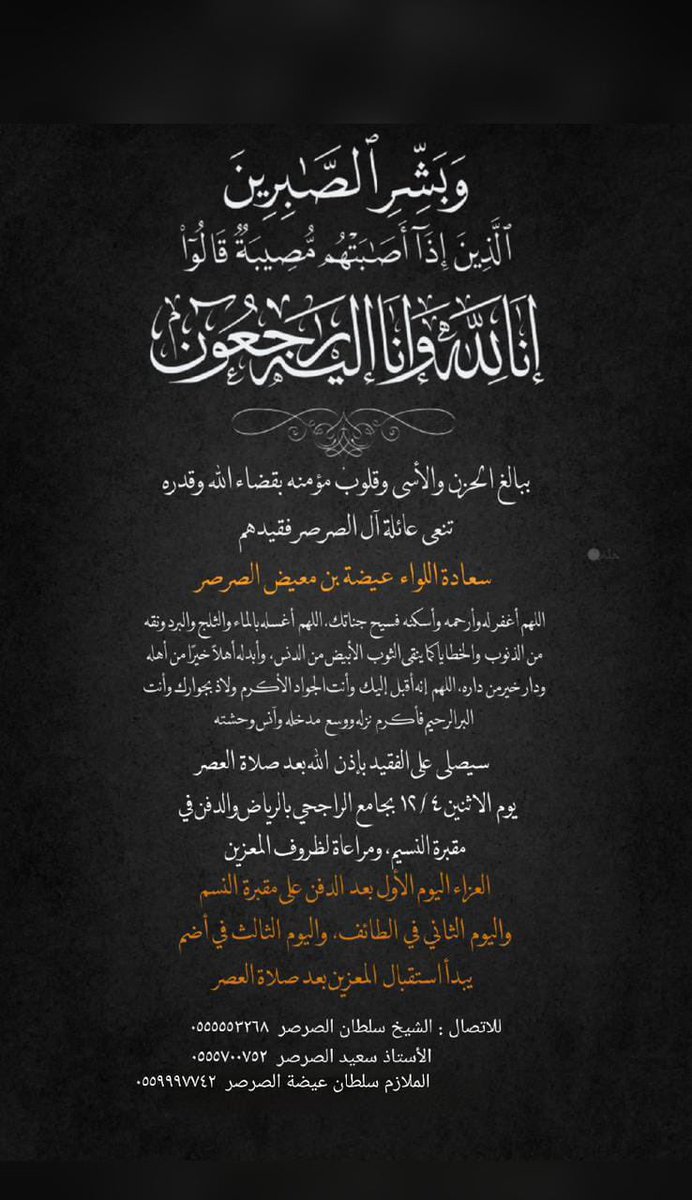 وَبَشِّرِ ٱلصَّٰبِرِينَ
ٱلَّذِينَ إِذَآ أَصَٰبَتْهُم مُّصِيبَةٌ قَالُوٓا۟
إنا لله وإنا إليه راجعون
ببالغ الحزن والأسى وقلوب مؤمنه بقضاء الله وقدره
تنعى عائلة آل الصرصر فقيدهم
سعادة اللواء عيضة بن معيض الصرصر
اللهم أغفر له وأرحمه وأسكنه فسيح جناتك، اللهم أغسله بالماء والثلج والبرد ونقه
من الذنوب والخطايا كما ينقى الثوب الأبيض من الدنس، وأبدله أهلاً خيرًا من أهله
ودار خير من داره، اللهم إنه أقبل إليك وأنت الجواد الأكرم ولاذ بجوارك وأنت
البر الرحيم فأكرم نزله ووسع مدخله وآنس وحشته
سيصلى على الفقيد بإذن الله بعد صلاة العصر
يوم الاثنين ١٢/٤ بجامع الراجحي بالرياض والدفن في
مقبرة النسيم، ومراعاة لظروف المعزين
العزاء اليوم الأول بعد الدفن على مقبرة النسم
واليوم الثاني في الطائف، واليوم الثالث في أضم
يبدأ استقبال المعزين بعد صلاة العصر
للاتصال : الشيخ سلطان الصرصر ٠٥٥٥٥٥٣٢٦٨
الأستاذ سعيد الصرصر ٠٥٥٥٧٠٠٧٥٢
الملازم سلطان عيضة الصرصر ٠٥٥٩٩٩٧٧٤٢